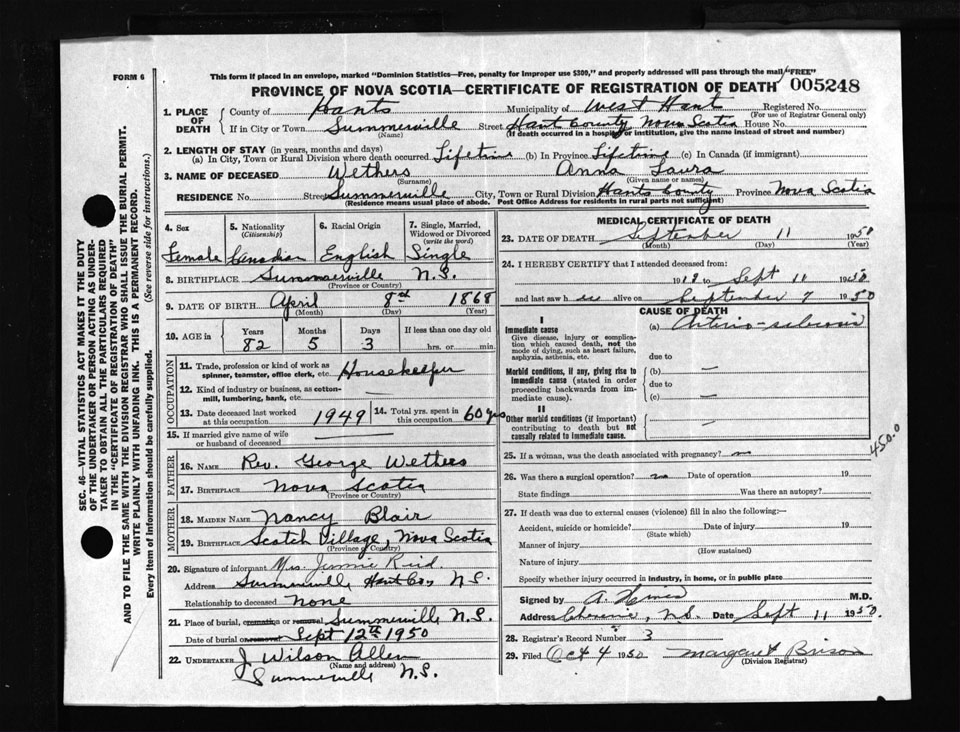 FORM 6
This form if placed in an envelope, marked "Dominion Statistics—Free, penalty for improper use $300," and properly addressed will pass through the mail "FREE"
PROVINCE OF NOVA SCOTIA—CERTIFICATE OF REGISTRATION OF DEATH 005248
SEC. 46—VITAL STATISTICS ACT MAKES IT THE DUTY
OF THE UNDERTAKER OR PERSON ACTING AS UNDER-
TAKER TO OBTAIN ALL THE PARTICULARS REQUIRED
IN THE "CERTIFICATE OF REGISTRATION OF DEATH"
AND TO FILE THE SAME WITH THE DIVISION REGISTRAR WHO SHALL ISSUE THE BURIAL PERMIT.
WRITE PLAINLY WITH UNFADING INK. THIS IS A PERMANENT RECORD.
Every item of information should be carefully supplied. (See reverse side for instructions.)
1. PLACE OF DEATH
County of Hants Municipality of West Hant Registered No.
(For use of Registrar General only)
If in City or Town Summerville Street Hant County, Nova Scotia House No.
(Name) (If death occurred in a hospital or institution, give the name instead of street and number)
2. LENGTH OF STAY (in years, months and days)
(a) In City, Town or Rural Division where death occurred Lifetime (b) In Province Lifetime (c) In Canada (if immigrant)
3. NAME OF DECEASED Wethers Anna Laura
(Surname) (Given name or names)
RESIDENCE No. Street Summerville City, Town or Rural Division Hants County Province Nova Scotia
(Residence means usual place of abode. Post Office Address for residents in rural parts not sufficient)
4. Sex 5. Nationality (Citizenship) 6. Racial Origin 7. Single, Married, Widowed or Divorced (write the word)
Female Canadian English Single
8. BIRTHPLACE Summerville N.S.
(Province or Country)
9. DATE OF BIRTH April 8th 1868
(Month) (Day) (Year)
10. AGE in Years Months Days If less than one day old
82 5 3 hrs. or min.
OCCUPATION
11. Trade, profession or kind of work as spinner, teamster, office clerk, etc. Housekeeper
12. Kind of industry or business, as cotton-mill, lumbering, bank, etc.
13. Date deceased last worked at this occupation 1949 14. Total yrs. spent in this occupation 60 yrs
15. If married give name of wife or husband of deceased
FATHER
16. NAME Rev. George Wethers
17. BIRTHPLACE Nova Scotia
(Province or Country)
MOTHER
18. MAIDEN NAME Nancy Blair
19. BIRTHPLACE Scotch Village, Nova Scotia
(Province or Country)
20. Signature of informant Mrs. Jennie Reid
Address Summerville Hant Co, N.S.
Relationship to deceased None
21. Place of burial, cremation or removal Summerville N.S.
Date of burial or removal Sept 12th 1950
22. UNDERTAKER J. Wilson Allen
(Name and address)
Summerville N.S.
MEDICAL CERTIFICATE OF DEATH
23. DATE OF DEATH September 11 1950
(Month) (Day) (Year)
24. I HEREBY CERTIFY that I attended deceased from:
to Sept 11 1950
and last saw h alive on September 7 1950
CAUSE OF DEATH
I
Immediate cause (a) Arterio-sclerosis
Give disease, injury or complication which caused death, not the mode of dying, such as heart failure, asphyxia, asthenia, etc.
due to
Morbid conditions, if any, giving rise to immediate cause (stated in order proceeding backwards from immediate cause).
(b) —
due to
(c) —
II
Other morbid conditions (if important) contributing to death but not causally related to immediate cause.
—
450-0
25. If a woman, was the death associated with pregnancy? no
26. Was there a surgical operation? no Date of operation 19
State findings Was there an autopsy?
27. If death was due to external causes (violence) fill in also the following:—
Accident, suicide or homicide? Date of injury 19
(State which)
Manner of injury
(How sustained)
Nature of injury
Specify whether injury occurred in industry, in home, or in public place
Signed by M.D.
Address N.S. Date Sept 11 1950
28. Registrar's Record Number 3
29. Filed Oct 4 1950 Margaret Brison
(Division Registrar)